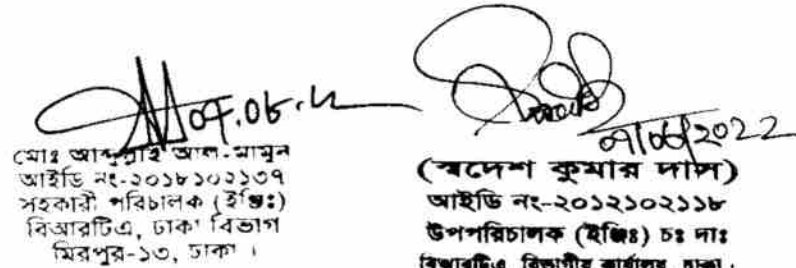 মোঃ আব্দুল্লাহ আল-মামুন
আইডি নং-২০১৮১০২১৩৭
সহকারী পরিচালক (ইঞ্জিঃ)
বিআরটিএ, ঢাকা বিভাগ
মিরপুর-১৩, ঢাকা ।
07/06/2022
(স্বদেশ কুমার দাস)
আইডি নং-২০১২১০২১১৮
উপপরিচালক (ইঞ্জিঃ) চঃ দাঃ
বিআরটিএ, বিভাগীয় কার্যালয়, ঢাকা ।